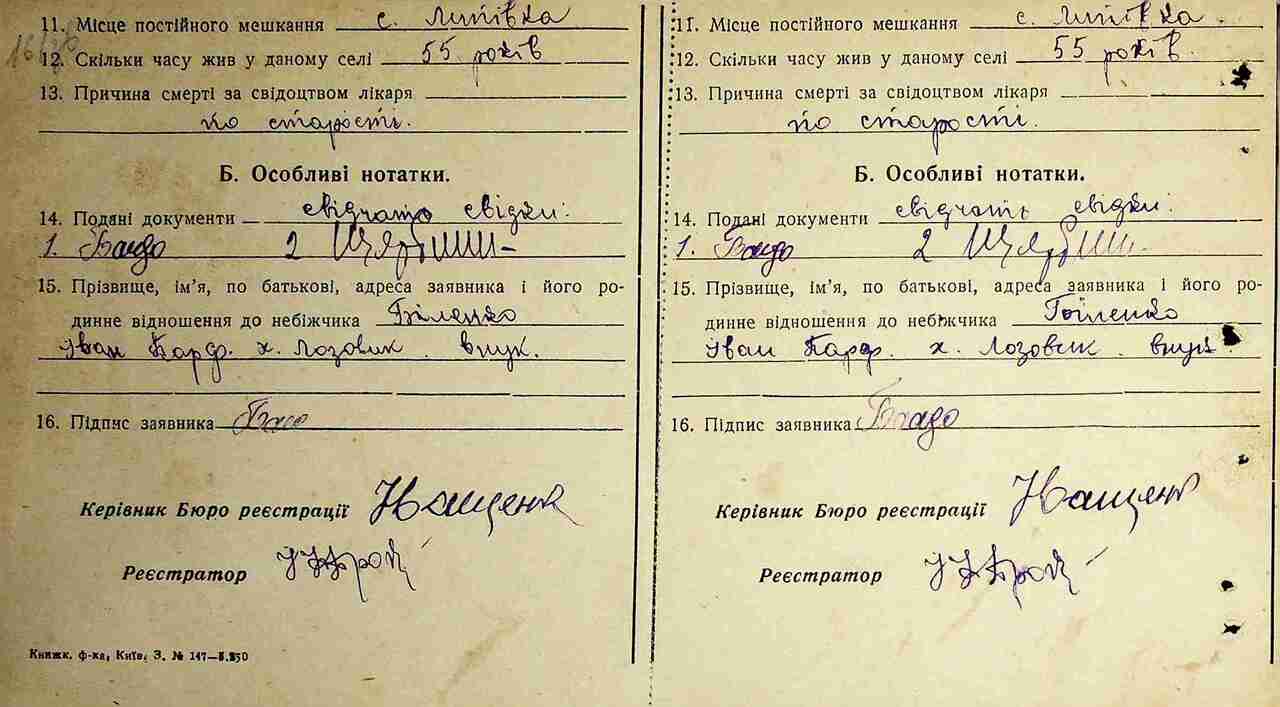 11. Місце постійного мешкання с. Липівка
12. Скільки часу жив у даному селі 55 років
13. Причина смерті за свідоцтвом лікаря
по старості.
Б. Особливі нотатки.
14. Подані документи свідчать свідки:
1. 2
15. Прізвище, ім’я, по батькові, адреса заявника і його ро-
динне відношення до небіжчика Біленко
Іван Парф. х. Лозовик. внук.
16. Підпис заявника
Керівник Бюро реєстрації
Реєстратор
Книжк. ф-ка, Київ. З. № 147—
11. Місце постійного мешкання с. Липівка.
12. Скільки часу жив у даному селі 55 років.
13. Причина смерті за свідоцтвом лікаря
по старості.
Б. Особливі нотатки.
14. Подані документи свідчать свідки:
1. 2
15. Прізвище, ім’я, по батькові, адреса заявника і його ро-
динне відношення до небіжчика Біленко
Іван Парф. х. Лозовик. внук.
16. Підпис заявника
Керівник Бюро реєстрації
Реєстратор